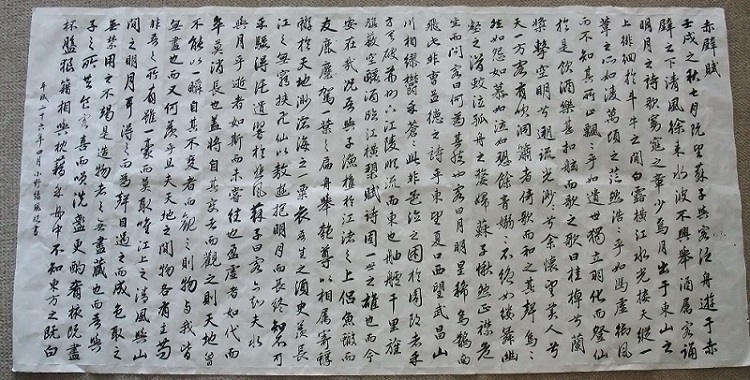 赤壁賦
壬戌之秋七月既望蘇子與客泛舟遊于赤
壁之下清風徐来水波不興舉酒属客誦
明月之詩歌窈窕之章少焉月出于東山之
上徘徊於斗牛之間白露横江水光接天縱一
葦之所如凌萬頃之茫然浩浩乎如馮虚御風
而不知其所止飄飄乎如遺世獨立羽化而登仙
於是飲酒樂甚扣舷而歌之歌曰桂棹兮蘭
槳擊空明兮遡流光渺渺兮余懐望美人兮
天一方客有吹洞簫者倚歌而和之其聲嗚嗚
然如怨如慕如泣如訴餘音嫋嫋不絶如縷舞幽
壑之潜蛟泣孤舟之嫠婦蘇子愀然正襟危
坐而問客曰何為其然也客曰月明星稀烏鵲南
飛此非曹孟德之詩乎東望夏口西望武昌山
川相繆鬱乎蒼蒼此非孟德之困於周郎者乎
方其破荊州下江陵順流而東也舳艫千里旌
旗蔽空釃酒臨江横槊賦詩固一世之雄也而今
安在哉況吾與子漁樵於江渚之上侶魚鰕而
友麋鹿駕一葉之扁舟舉匏尊以相属寄蜉
蝣於天地渺滄海之一粟哀吾生之須臾羨長
江之無窮挟飛仙以遨遊抱明月而長終知不可
乎驟得託遺響於悲風蘇子曰客亦知夫水
與月乎逝者如斯而未嘗往也盈虚者如代而
卒莫消長也蓋將自其變者而觀之則天地曾
不能以一瞬自其不變者而觀之則物與我皆
無盡也而又何羨乎且夫天地之間物各有主苟
非吾之所有雖一毫而莫取唯江上之清風與山
間之明月耳得之而為聲目遇之而成色取之
無禁用之不竭是造物者之無盡藏也而吾與
子之所共食客喜而笑洗盞更酌肴核既盡
杯盤狼籍相與枕藉乎舟中不知東方之既白
平成二十六年四月 小野 書